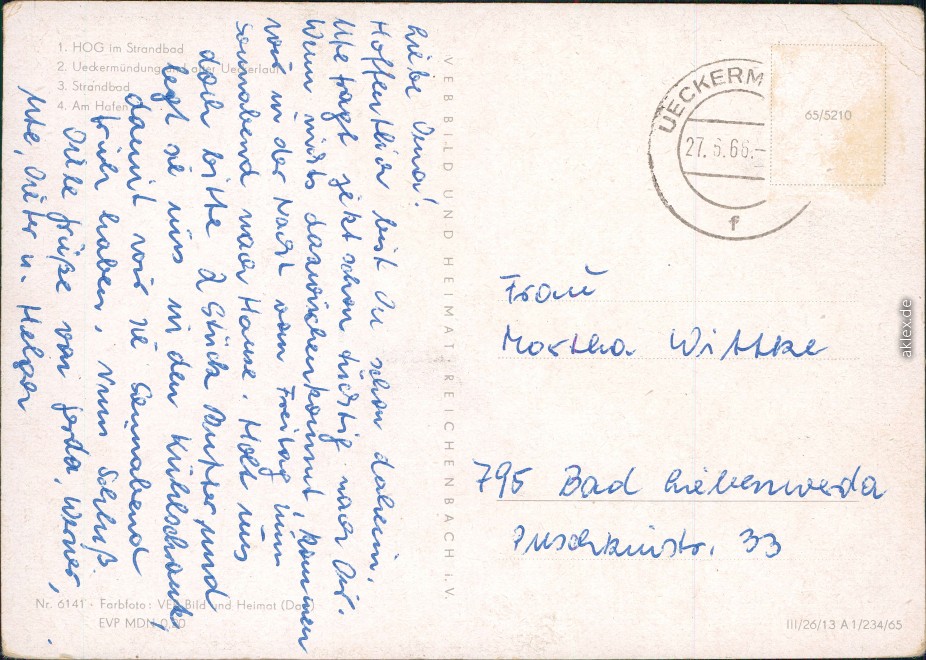 1. HOG im Strandbad
2. Ueckermündung
3. Strandbad
4. Am Hafen
Liebe Oma!
Hoffentlich bist Du schon daheim.
Ute fragt jetzt schon tüchtig nach Dir.
Wenn nichts dazwischenkommt, kommen
wir in der Nacht vom Freitag zum
Sonnabend nach Hause. Holt uns
doch bitte 2 Stück Butter und
legt sie uns in den Kühlschrank,
damit wir sie Sonnabend
früh haben. Zum Schluß
Viele Grüße von Gerda, Werner,
Ute, Dieter u. Helga
VEB BILD UND HEIMAT REICHENBACH i. V.
UECKERM
27.6.66.-
f
65/5210
Frau
Martha Wittke
795 Bad Liebenwerda
Puschkinstr. 33
Nr. 6141 · Farbfoto: VEB Bild und Heimat
EVP MDN 0,20
III/26/13 A 1/234/65
aklex.de